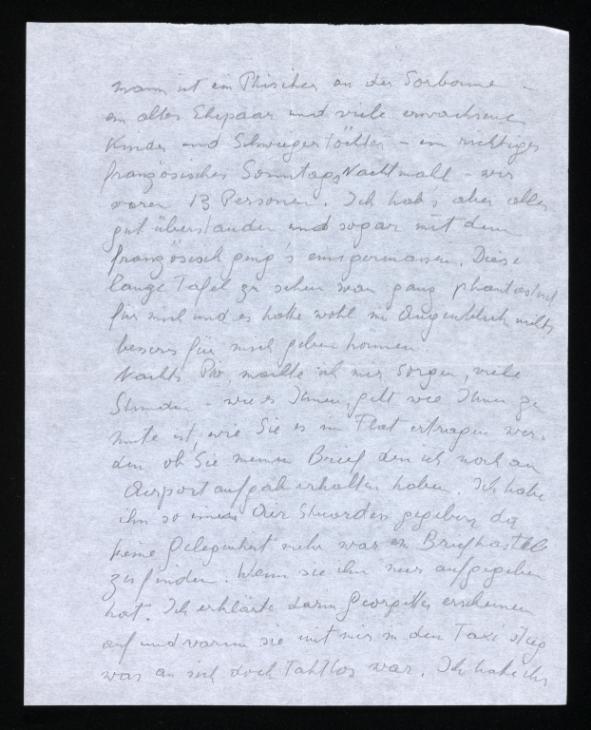 mann ist ein Phisiker an der Sorbonne –
ein altes Ehepaar und viele erwachsene
Kinder und Schwiegertöchter – ein richtiges
französisches Sonntags Nachtmahl – wir
waren 13 Personen. Ich hab's aber alles
gut überstanden und sogar mit dem
französisch ging's einigermassen. Diese
lange Tafel zu sehen war ganz phantastisch
für mich und es hätte wohl im Augenblick nichts
besseres für mich geben können.
Nachts machte ich mir Sorgen, viele
Stunden – wie es Ihnen geht wie Ihnen zu
mute ist, wie Sie es im Flat ertragen wer-
den ob Sie meinen Brief den ich noch am
Airport aufgab erhalten haben. Ich habe
ihn so einer Air Stuardess gegeben da
keine Gelegenheit mehr war ein Briefkasten
zu finden. Wenn sie ihn nur aufgegeben
hat. Ich erklärte darin Georgettes erscheinen
auf und warum sie mit mir in den Taxi stieg
was an sich doch taktlos war. Ich habe ihr